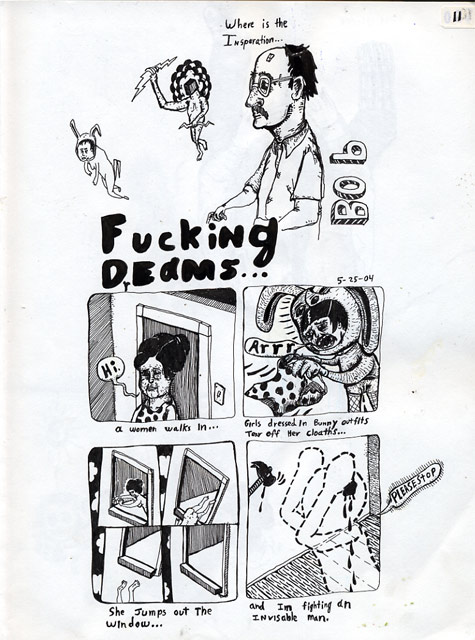 Where is the
Insperation...
11
BOb
Fucking
DrEAMS...
5-25-04
Hi.
Arrr
a women walks in...
Girls dressed In Bunny outfits
Tear off Her cloaths...
PLEASE STOP
She Jumps out The
Window...
and Im fighting an
Invisable man.